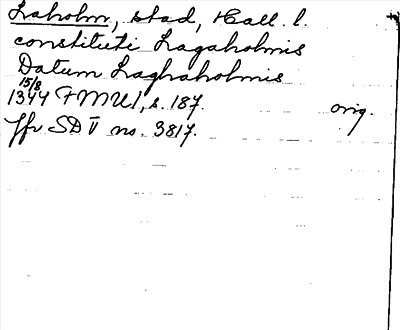 Laholm, stad, Hall. l.
constituti Lagaholmis
Datum Laghaholmis
15/8
1344 FMU I, s. 187. orig.
Jfr SD V no. 3817.